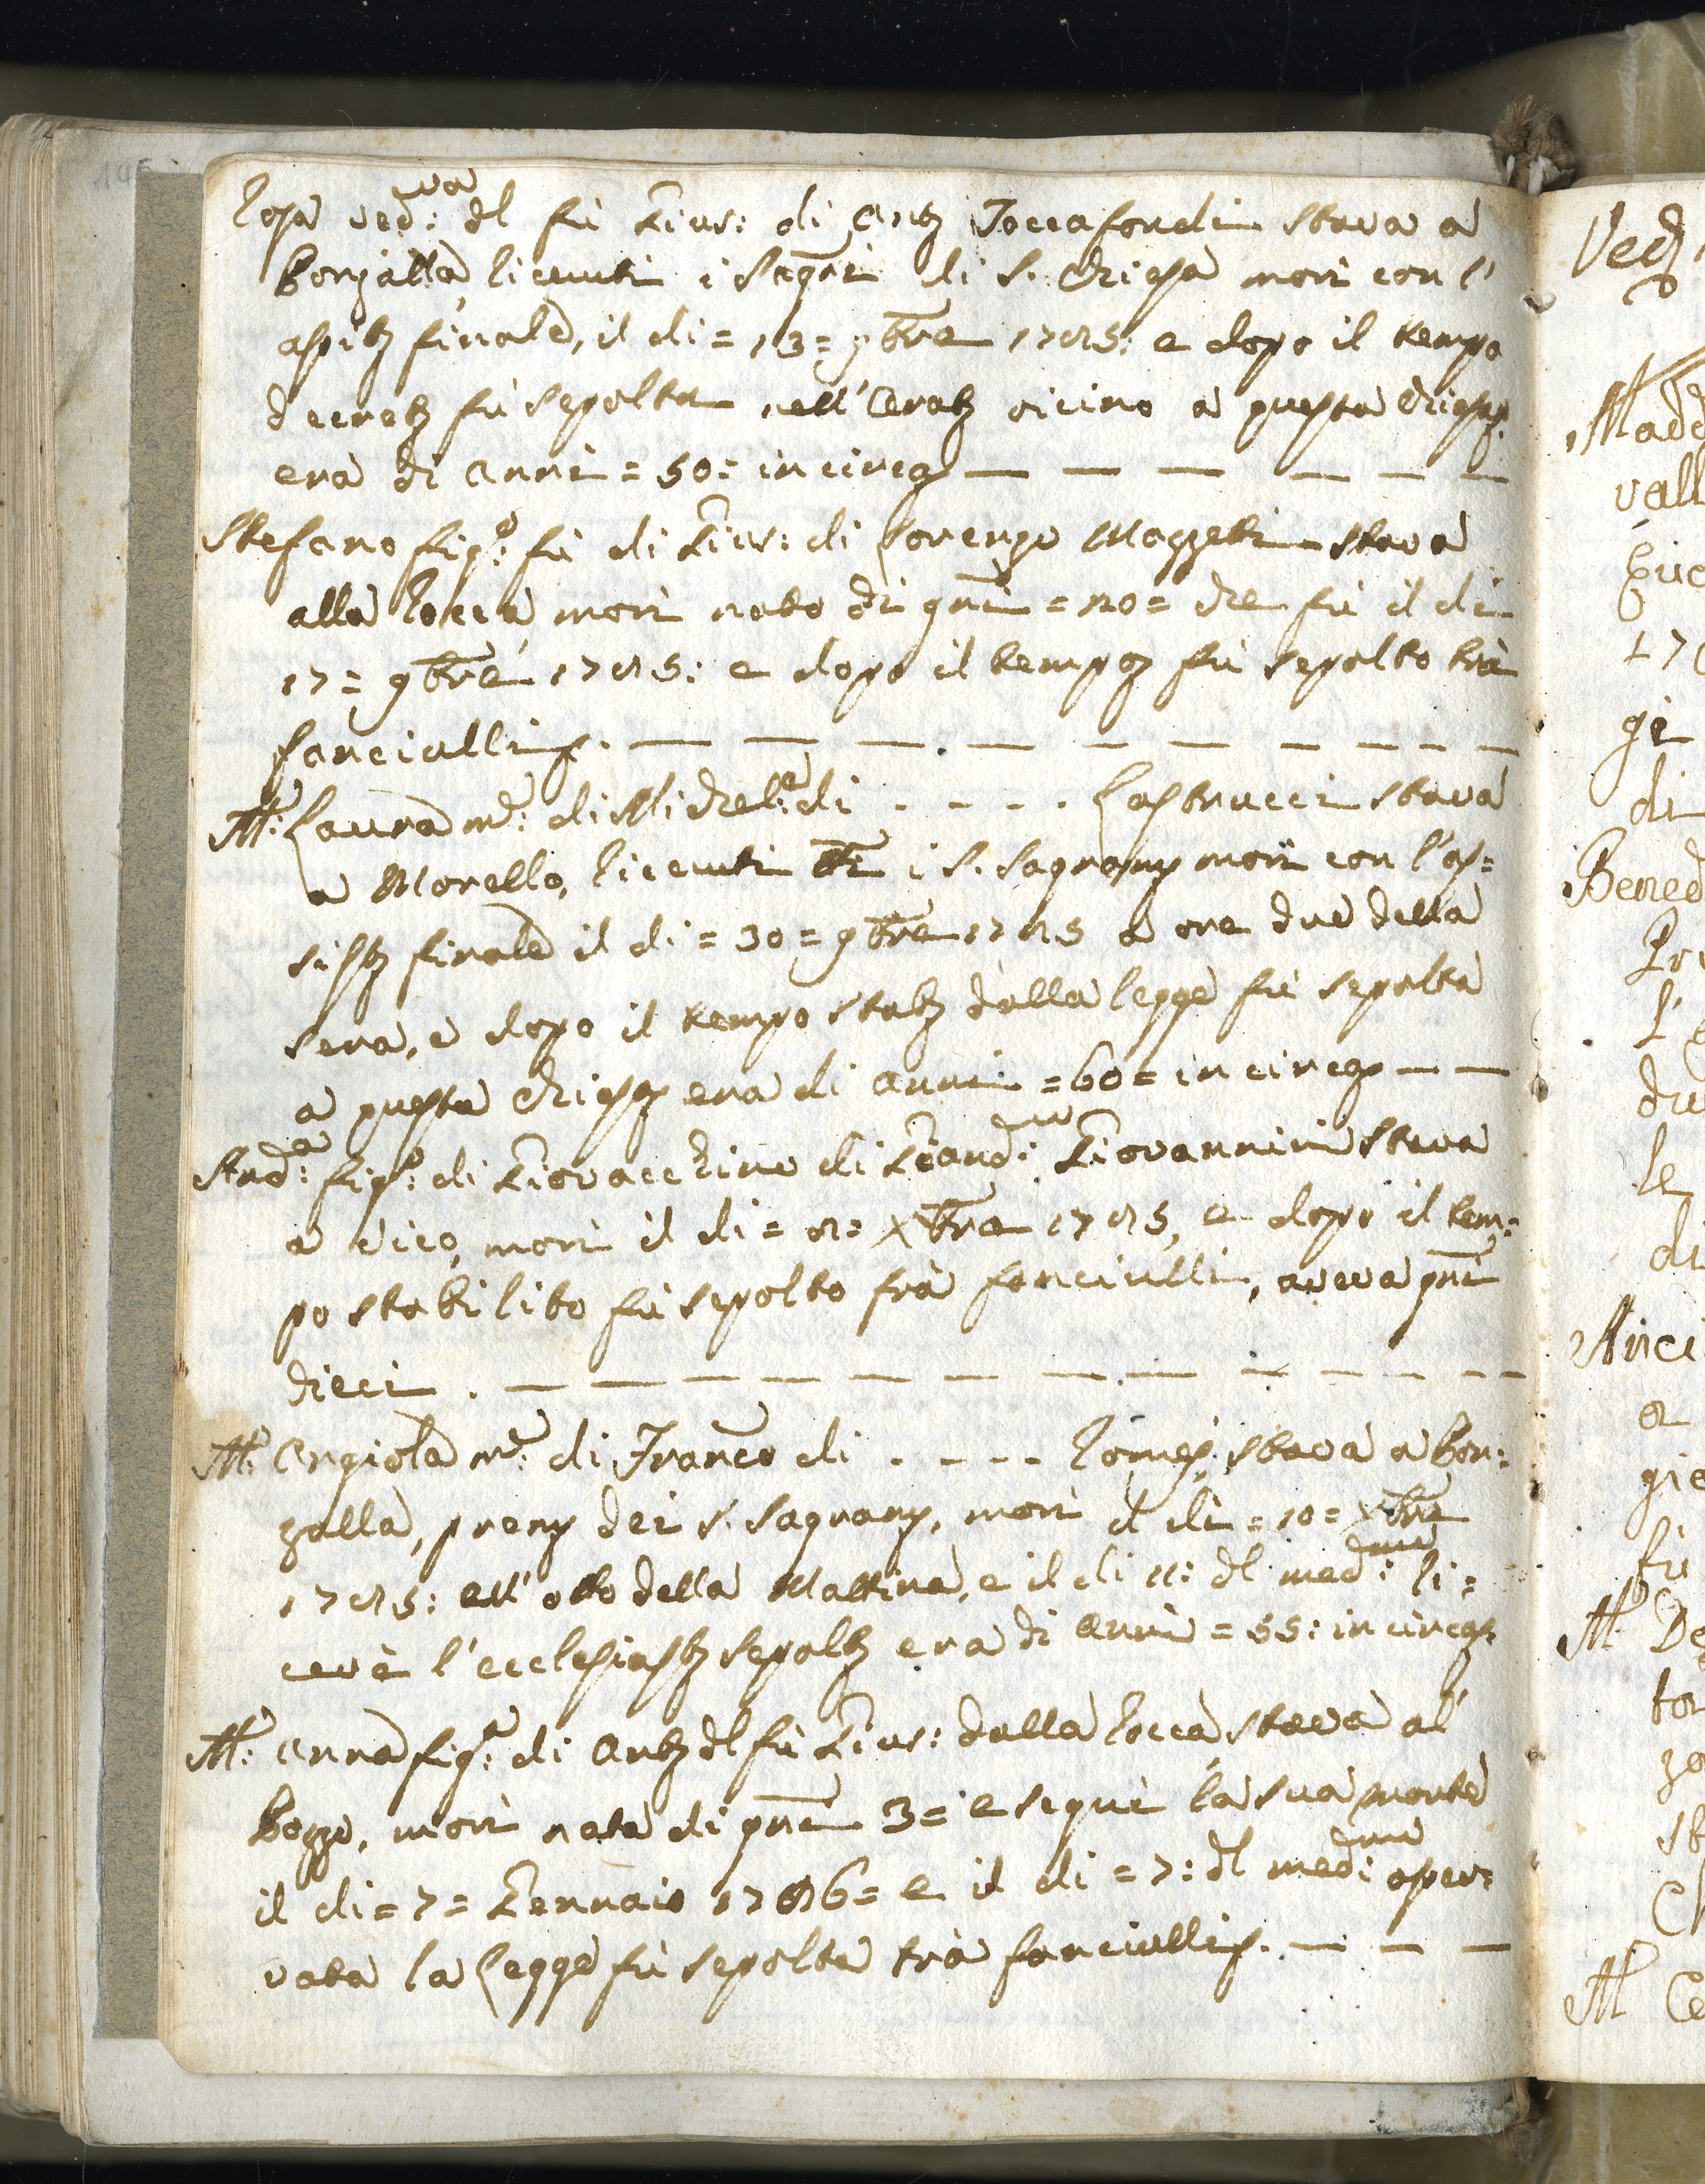 Rosa ved:va dl fù Gius: di Anto Toccafondi stava a
Bonzalla, riceuti i Sagri di S. Chiesa morì con l'
assito finale, il di = 13 = 9bre 1785: e dopo il tempo
decreto fù sepolta nell' Cerato vicino a questa Chiesa
era di anni = 50: in circa — — — — — —
Stefano figo: fù di Gius: di Lorenzo Mazzetti stava
alla Rocca morì nato di gni = 20 = che fù il di
17 = 9bre 1785: e dopo il tempo fù sepolto trà
fanciulli. — — — — — — — — — —
M: Laura me: di Michele:a di . - - - . Castrucci stava
a Morello, riceuti tti i S. Sagram morì con l'as=
sisto finale il di = 30 = 9bre 1785 a ore due della
sera, e dopo il tempo stato dalla legge fù sepolta
a questa Chiesa era di anni = 60 = in circa — —
Anda: figo: di Giovacchino di Gio and: Giovannini stava
a Vico, morì il di = 8 = Xbre 1785, e dopo il tem:
po stabilito fù sepolto frà fanciulli, aveva gni
dieci . — — — — — — — — — — — —
M: Angiola me: di Franco di . - - - Romei: stava a Bon:
zalla, prem dei S. Sagram, morì il di = 10 = Xbre
1785: all' otto della Mattina, e il di 11: dl med:mo ri=
cevè l'ecclesiasto sepolto era di anni = 55: in circa
M: Anna figa: di Anto dl fù Gius: dalla Rocca stava al'
Bozzo, morì nata di gni 3 = e seguì la sua morte
il di = 7 = Gennaio 1786 = e il di = 7: dl medmo osser=
vata la legge fù sepolta trà fanciulli. — — —
Ved
Madd
vall
Giu
17
gi
di
Bened
Pri
l'
du
le
di
Anci
a
gie
fù
M De
tor
zo
st
Ch
M Ce